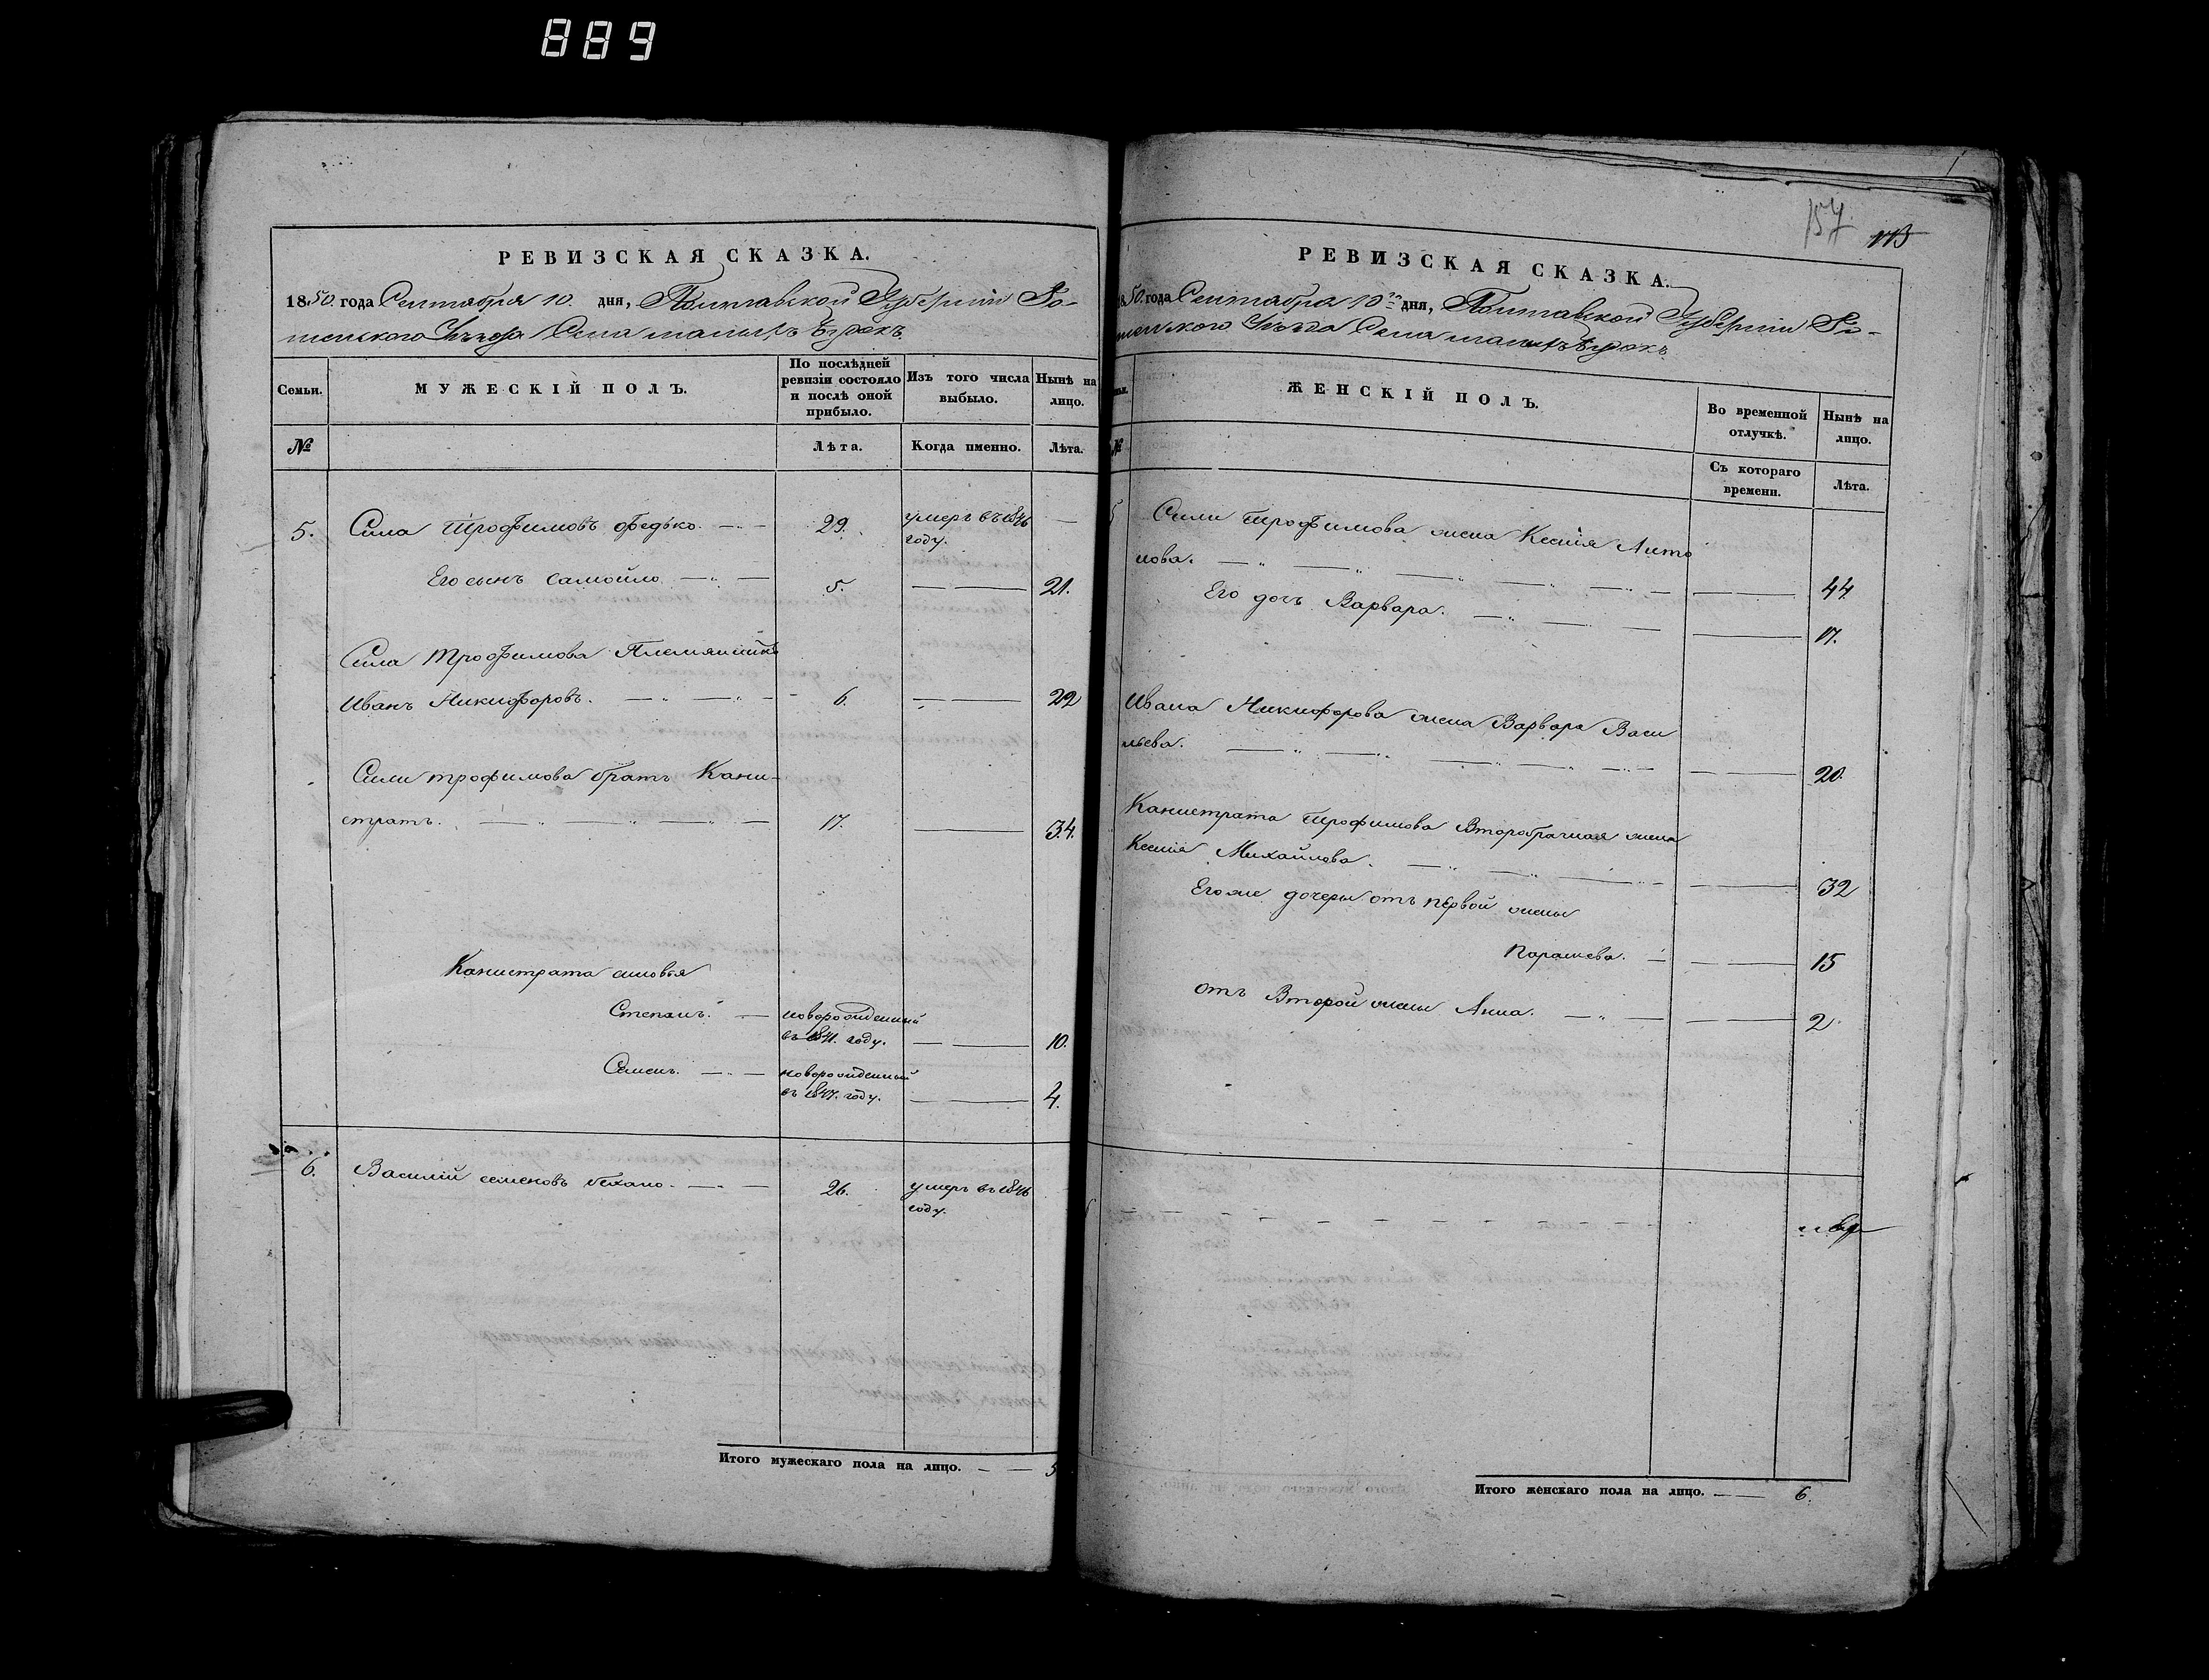 889
РЕВИЗСКАЯ СКАЗКА.
1850. года Сентября 10. дня, Полтавской Губернии Ро-
менского Уѣзда Села малыхъ Бубнъ
Семьи.
МУЖЕСКІЙ ПОЛЪ.
По послѣдней ревизіи состояло и послѣ оной прибыло.
Изъ того числа выбыло.
Нынѣ на лицо.
№
Лѣта.
Когда именно.
Лѣта.
5. Сила Трофимовъ Федько. 29. умеръ въ 1846 году.
Его сынъ Самойло 5. 21.
Сила Трофимова Племянникъ
Иванъ Никифоровъ. 6. 22
Сили трофимова братъ Кани-
стратъ. 17. 34.
Канистрата сыновья
Степанъ. новорожденный въ 1841. году. 10.
Семенъ. новорожденный въ 1847. году. 4.
6. Василій семеновъ 26. умеръ въ 1846 году.
Итого мужескаго пола на лицо. 5
157
РЕВИЗСКАЯ СКАЗКА.
1850. года Сентября 10 дня, Полтавской Губерніи Ро-
менского Уѣзда Села малыхъ
№
ЖЕНСКІЙ ПОЛЪ.
Во временной отлучкѣ.
Нынѣ на лицо.
Съ котораго времени.
Лѣта.
5 Сили Трофимова жена Ксенія Анто
нова. 44.
Его дочь Варвара. 17.
Ивана Никифорова жена Варвара Васи
льева. 20.
Канистрата Трофимова Второбрачная жена
Ксенія Михайлова. 32
Его же дочеры отъ первой жены
Параскева. 15
отъ Второй жены Анна. 2.
Итого женскаго пола на лицо. 6.